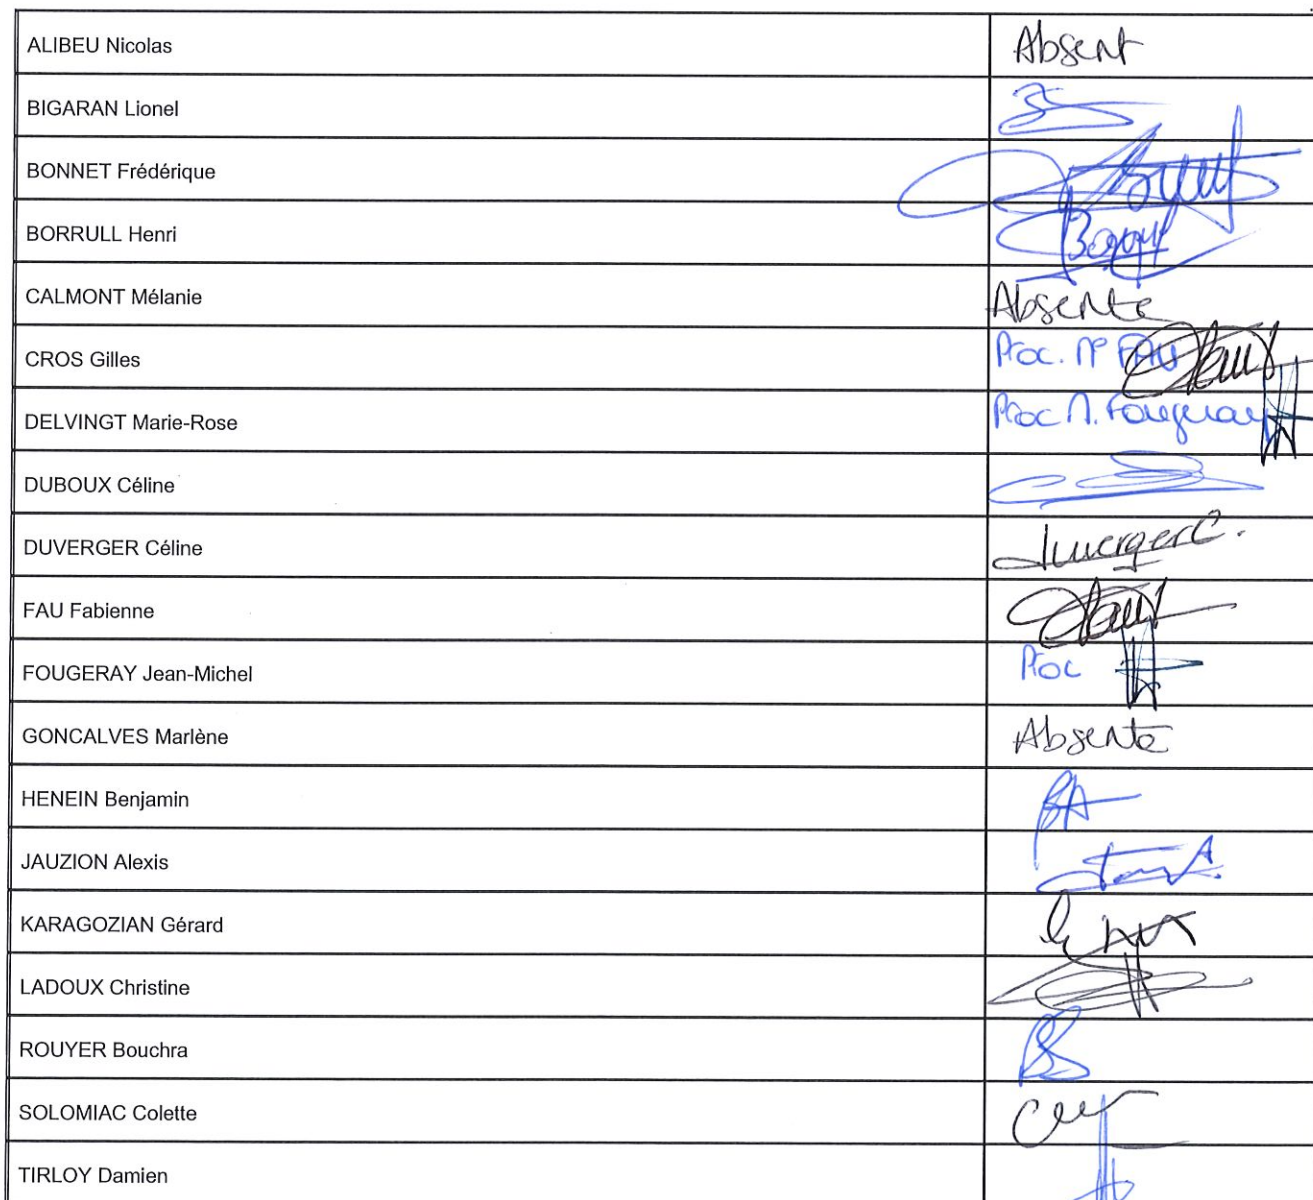 ALIBEU Nicolas Absent
BIGARAN Lionel
BONNET Frédérique
BORRULL Henri
CALMONT Mélanie Absente
CROS Gilles Proc. Me FAU
DELVINGT Marie-Rose Proc M. Fougeray
DUBOUX Céline
DUVERGER Céline Duverger C.
FAU Fabienne
FOUGERAY Jean-Michel Proc
GONCALVES Marlène Absente
HENEIN Benjamin
JAUZION Alexis
KARAGOZIAN Gérard
LADOUX Christine
ROUYER Bouchra
SOLOMIAC Colette
TIRLOY Damien